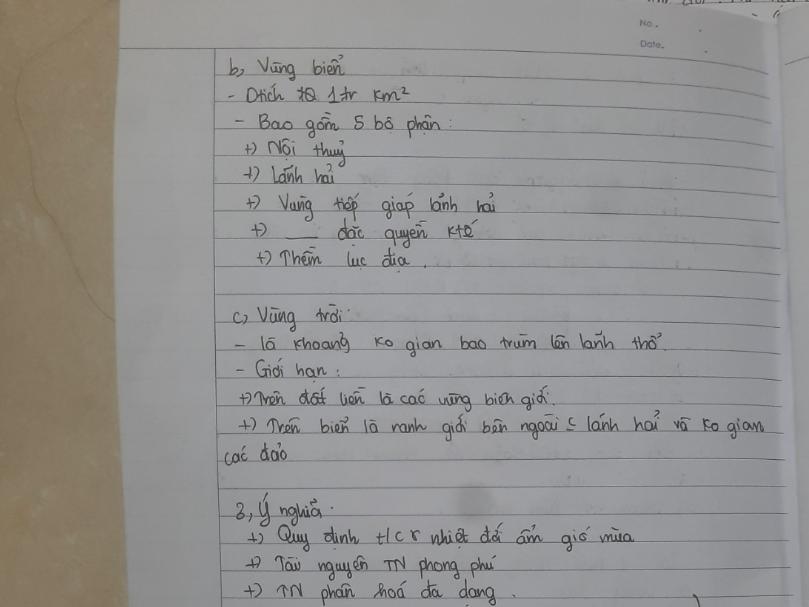 No.
Date.
b, Vùng biển
- Dtích 1tr Km²
- Bao gồm 5 bộ phận:
+) Nội thuỷ
+) Lãnh hải
+) Vùng tiếp giáp lãnh hải
+) __ đặc quyền Ktế
+) Thềm lục địa.
c, Vùng trời:
- là khoảng ko gian bao trùm lên lãnh thổ.
- Giới hạn:
+) Trên đất liền là các biên giới.
+) Trên biển là ranh giới bên ngoài lãnh hải và ko gian
các đảo
3, Ý nghĩa.
+) Quy định t/c nhiệt đới ẩm gió mùa
+) Tài nguyên TN phong phú
+) TN phân hoá đa dạng.